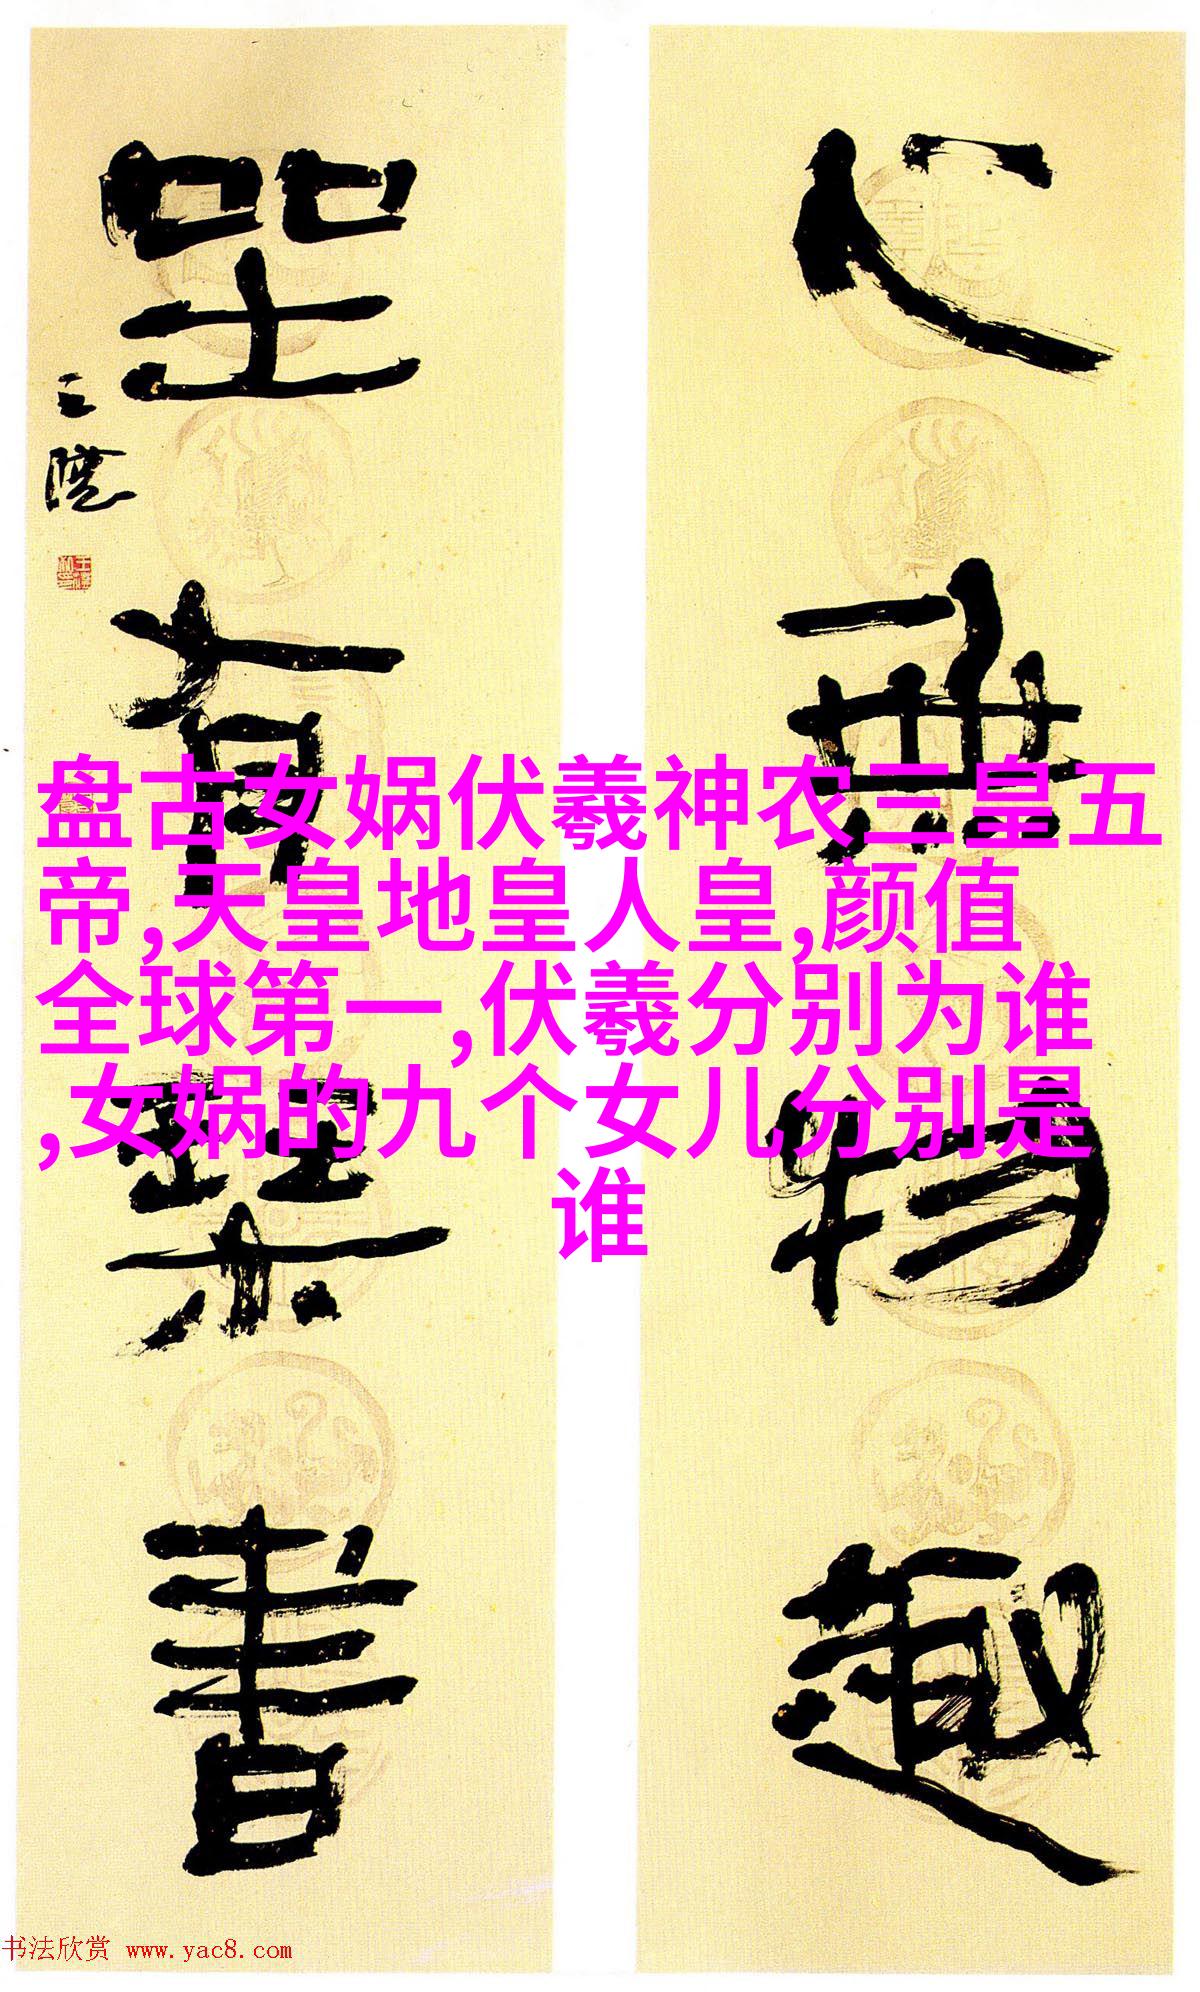 心無物趣
坐有琴書
盘古女娲伏羲神农三皇五
帝,天皇地皇人皇,颜值
全球第一,伏羲分别为谁
,女娲的九个女儿分别是
谁
书法欣赏 www.yac8.com